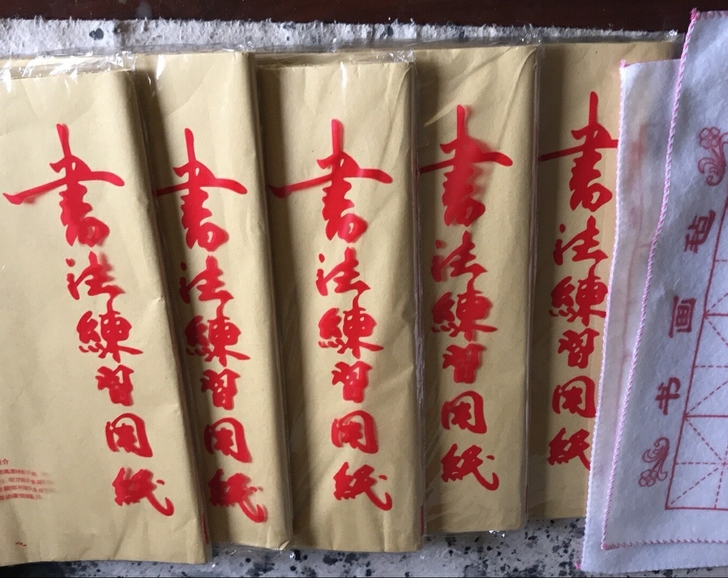 書法練習用紙
書法練習用紙
書法練習用紙
書法練習用紙
書法練習用紙
书画毡